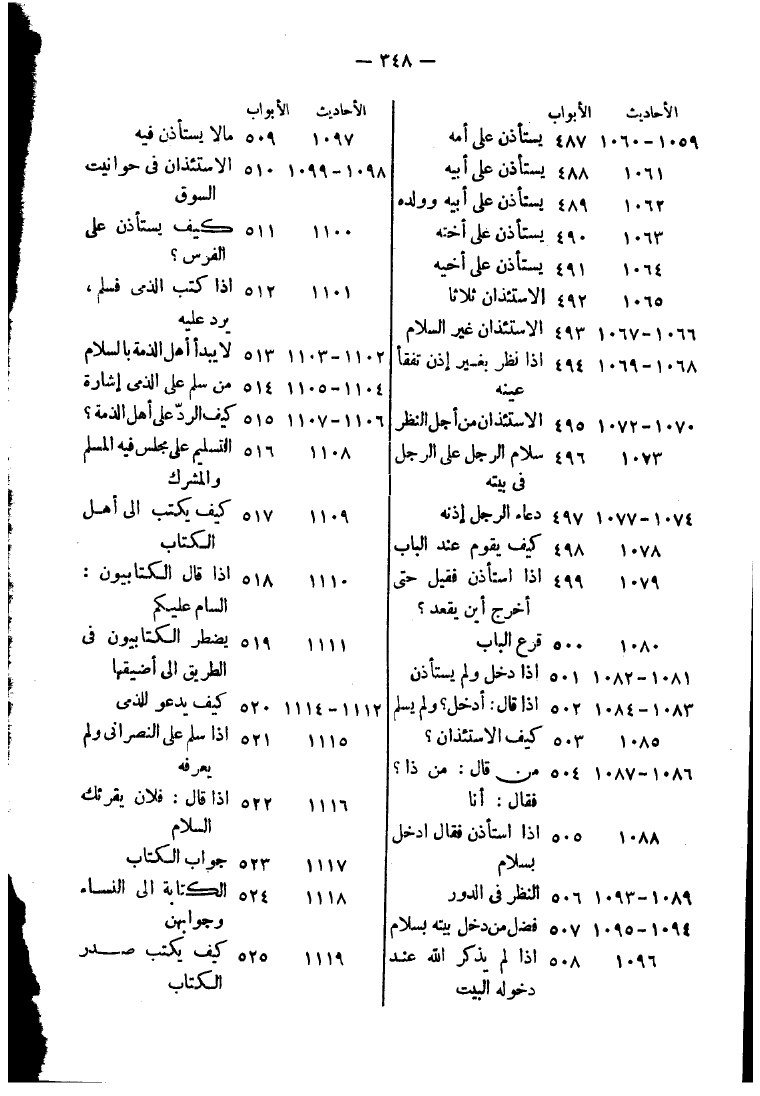 — ٣٤٨ —
الأحاديث الأبواب
١٠٥٩-١٠٦٠ ٤٨٧ يستأذن على أمه
١٠٦١ ٤٨٨ يستأذن على أبيه
١٠٦٢ ٤٨٩ يستأذن على أبيه وولده
١٠٦٣ ٤٩٠ يستأذن على أخته
١٠٦٤ ٤٩١ يستأذن على أخيه
١٠٦٥ ٤٩٢ الاستئذان ثلاثا
١٠٦٦-١٠٦٧ ٤٩٣ الاستئذان غير السلام
١٠٦٨-١٠٦٩ ٤٩٤ اذا نظر بغير إذن تفقأ
عينه
١٠٧٠-١٠٧٢ ٤٩٥ الاستئذان من أجل النظر
١٠٧٣ ٤٩٦ سلام الرجل على الرجل
فى بيته
١٠٧٤-١٠٧٧ ٤٩٧ دعاء الرجل إذنه
١٠٧٨ ٤٩٨ كيف يقوم عند الباب
١٠٧٩ ٤٩٩ اذا استأذن فقيل حتى
أخرج أين يقعد ؟
١٠٨٠ ٥٠٠ قرع الباب
١٠٨١-١٠٨٢ ٥٠١ اذا دخل ولم يستأذن
١٠٨٣-١٠٨٤ ٥٠٢ اذا قال : أدخل ؟ ولم يسلم
١٠٨٥ ٥٠٣ كيف الاستئذان ؟
١٠٨٦-١٠٨٧ ٥٠٤ من قال : من ذا ؟
فقال : أنا
١٠٨٨ ٥٠٥ اذا استأذن فقال ادخل
بسلام
١٠٨٩-١٠٩٣ ٥٠٦ النظر فى الدور
١٠٩٤-١٠٩٥ ٥٠٧ فضل من دخل بيته بسلام
١٠٩٦ ٥٠٨ اذا لم يذكر الله عند
دخوله البيت
الأحاديث الأبواب
١٠٩٧ ٥٠٩ مالا يستأذن فيه
١٠٩٨-١٠٩٩ ٥١٠ الاستئذان فى حوانيت
السوق
١١٠٠ ٥١١ كيف يستأذن على
الفرس ؟
١١٠١ ٥١٢ اذا كتب الذمى فسلم ،
يرد عليه
١١٠٢-١١٠٣ ٥١٣ لا يبدأ أهل الذمة بالسلام
١١٠٤-١١٠٥ ٥١٤ من سلم على الذمى إشارة
١١٠٦-١١٠٧ ٥١٥ كيف الردّ على أهل الذمة ؟
١١٠٨ ٥١٦ التسليم على مجلس فيه المسلم
والمشرك
١١٠٩ ٥١٧ كيف يكتب الى أهل
الكتاب
١١١٠ ٥١٨ اذا قال الكتابيون :
السام عليكم
١١١١ ٥١٩ يضطر الكتابيون فى
الطريق الى أضيقها
١١١٢-١١١٤ ٥٢٠ كيف يدعو للذمى
١١١٥ ٥٢١ اذا سلم على النصرانى ولم
يعرفه
١١١٦ ٥٢٢ اذا قال : فلان يقرئك
السلام
١١١٧ ٥٢٣ جواب الكتاب
١١١٨ ٥٢٤ الكتابة الى النساء
وجوابهن
١١١٩ ٥٢٥ كيف يكتب صدر
الكتاب